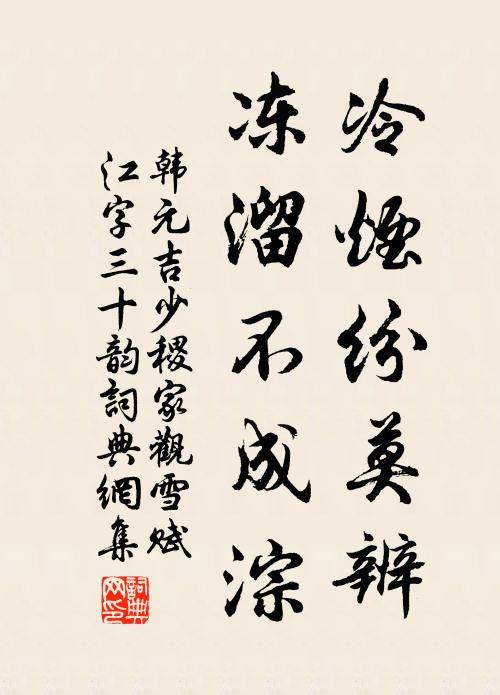 冷煙纷莫辨
冻溜不成淙
韩元吉少稷家觀雪赋
江字三十韵詞典網集
詞典
网印